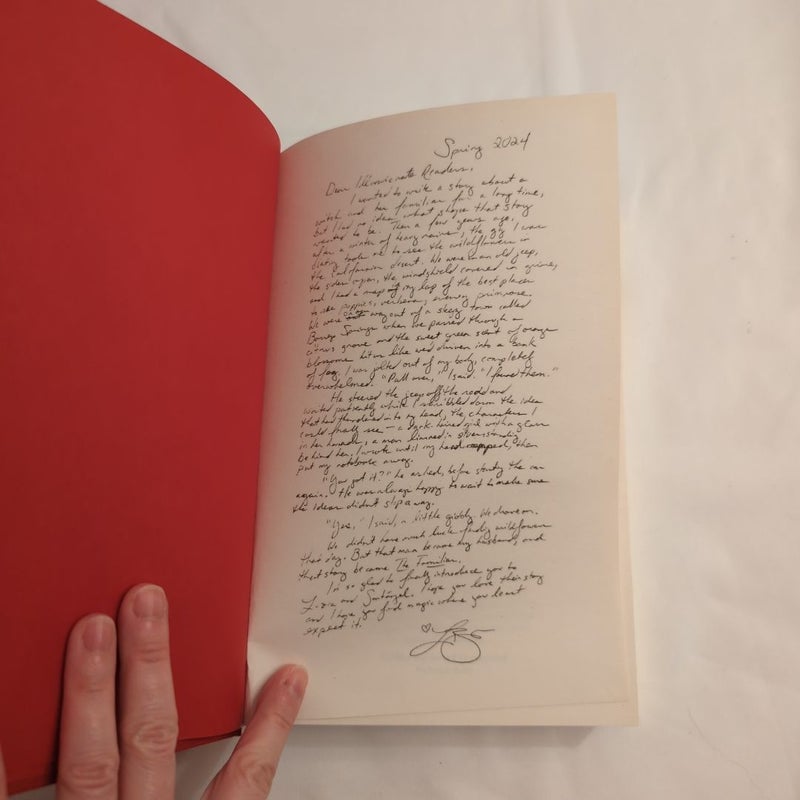 Spring 2024
Dear Illumicrate Readers,
I wanted to write a story about a
witch and her familiar for a long time,
but I had no idea what shape that story
wanted to be. Then a few years ago,
after a winter of heavy rains, the guy I was
dating took me to see the wildflowers in
the California desert. We were in an old jeep,
the sides open, the windshield covered in grime,
and I had a map on my lap of the best places
to see poppies, verbena, evening primrose.
We were on our way out of a sleepy town called
Borrego Springs when we passed through a
citrus grove and the sweet green scent of orange
blossoms hit us like we'd driven into a bank
of fog. I was jolted out of my body, completely
overwhelmed. "Pull over," I said. "I found them."
He steered the jeep off the road and
waited patiently while I scribbled down the idea
that had thundered into my head, the characters I
could finally see — a dark-haired girl with a glass
in her hands, a man limned in silver standing
behind her. I wrote until my hand cramped, then
put my notebook away.
"You got it?" he asked, before starting the car
again. He was always happy to wait to make sure
the ideas didn't slip away.
"Yes," I said, a little giddily. We drove on.
We didn't have much luck finding wildflowers
that day. But that man became my husband, and
that story became The Familiar.
I'm so glad to finally introduce you to
Luzia and Santángel. I hope you love their story
and I hope you find magic where you least
expect it.